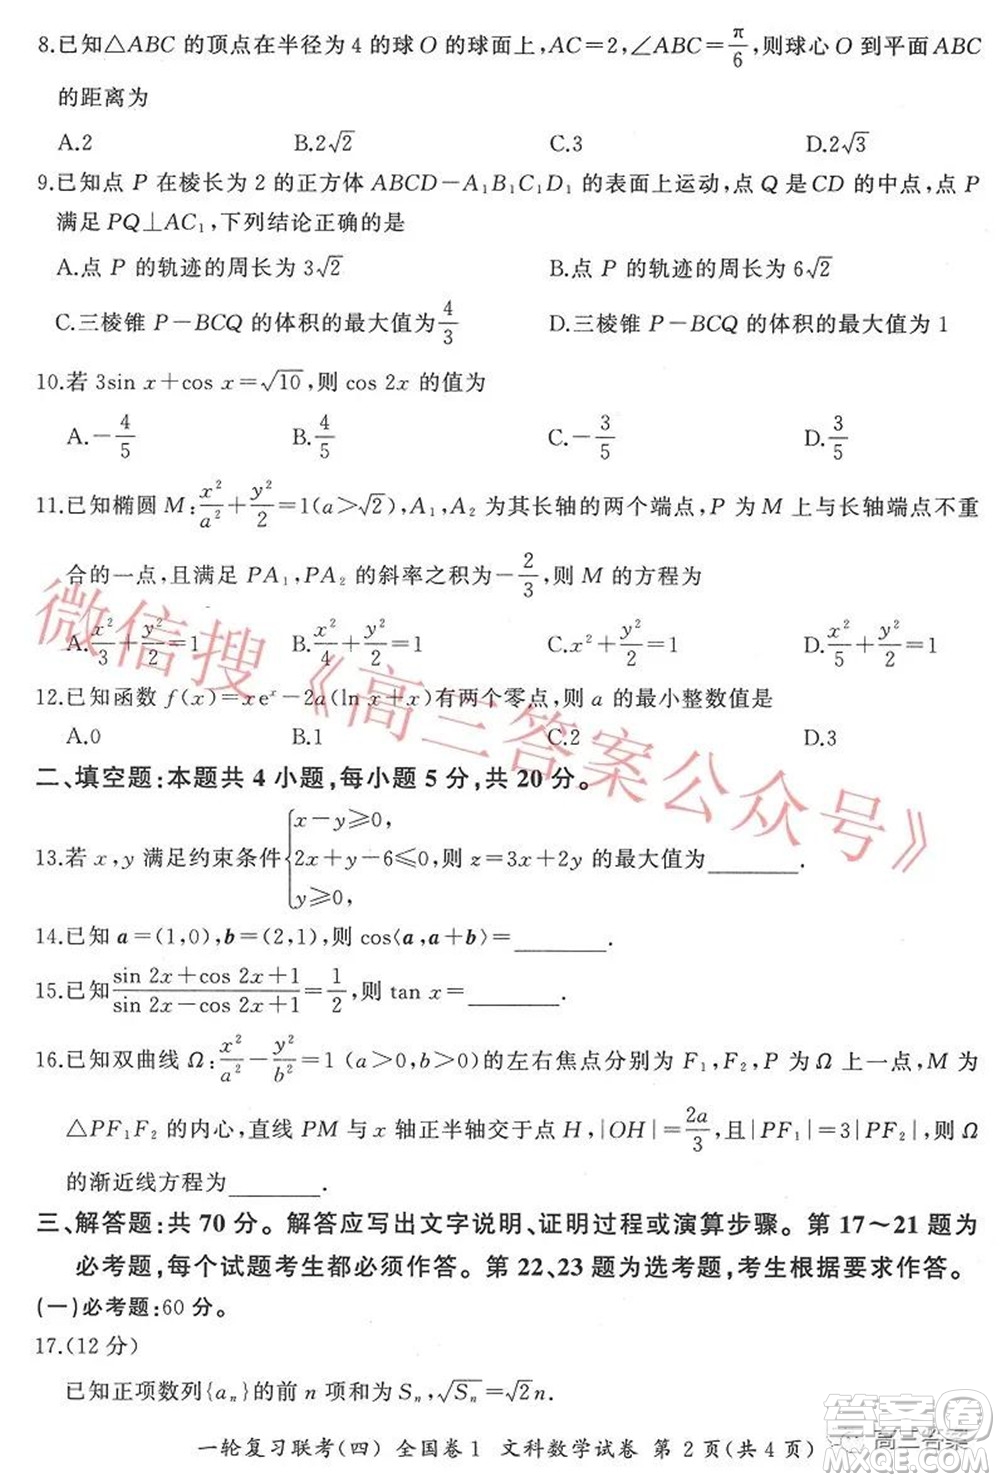 8.已知△ABC 的顶点在半径为 4 的球 O 的球面上,AC=2,∠ABC=π/6,则球心 O 到平面 ABC
的距离为
A.2 B.2√2 C.3 D.2√3
9.已知点 P 在棱长为 2 的正方体 ABCD-A₁B₁C₁D₁ 的表面上运动,点 Q 是 CD 的中点,点 P
满足 PQ⊥AC₁,下列结论正确的是
A.点 P 的轨迹的周长为 3√2 B.点 P 的轨迹的周长为 6√2
C.三棱锥 P-BCQ 的体积的最大值为 4/3 D.三棱锥 P-BCQ 的体积的最大值为 1
10.若 3sin x+cos x=√10,则 cos 2x 的值为
A.-4/5 B.4/5 C.-3/5 D.3/5
11.已知椭圆 M:x²/a²+y²/2=1(a>√2),A₁,A₂ 为其长轴的两个端点,P 为 M 上与长轴端点不重
合的一点,且满足 PA₁,PA₂ 的斜率之积为-2/3,则 M 的方程为
A.x²/3+y²/2=1 B.x²/4+y²/2=1 C.x²+y²/2=1 D.x²/5+y²/2=1
12.已知函数 f(x)=xeˣ-2a(ln x+x)有两个零点,则 a 的最小整数值是
A.0 B.1 C.2 D.3
二、填空题:本题共 4 小题,每小题 5 分,共 20 分。
13.若 x,y 满足约束条件{x-y≥0, 2x+y-6≤0, y≥0, 则 z=3x+2y 的最大值为______.
14.已知 a=(1,0),b=(2,1),则 cos⟨a,a+b⟩=______.
15.已知(sin 2x+cos 2x+1)/(sin 2x-cos 2x+1)=1/2,则 tan x=______.
16.已知双曲线 Ω:x²/a²-y²/b²=1 (a>0,b>0)的左右焦点分别为 F₁,F₂,P 为 Ω 上一点,M 为
△PF₁F₂ 的内心,直线 PM 与 x 轴正半轴交于点 H,|OH|=2a/3,且|PF₁|=3|PF₂|,则 Ω
的渐近线方程为______.
三、解答题:共 70 分。解答应写出文字说明、证明过程或演算步骤。第 17~21 题为
必考题,每个试题考生都必须作答。第 22、23 题为选考题,考生根据要求作答。
(一)必考题:60 分。
17.(12 分)
已知正项数列{aₙ}的前 n 项和为 Sₙ,√Sₙ=√2n.
一轮复习联考(四) 全国卷 1 文科数学试卷 第 2 页(共 4 页)
微信搜《高三答案公众号》
高三答案
答案圈
MXQE.COM